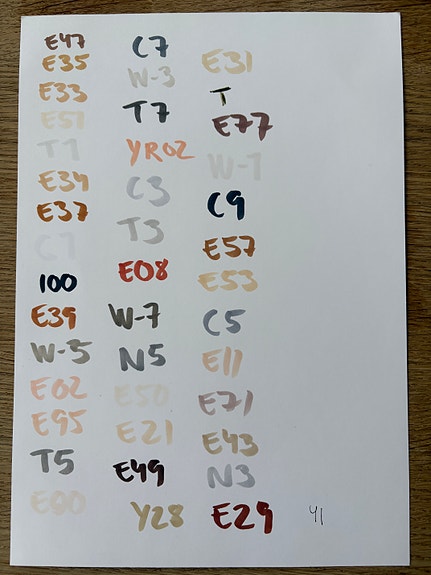 E47
E35
E33
E51
T1
E34
E37
C1
100
E39
W-5
E02
E95
T5
C7
W-3
T7
YR02
C3
T3
E08
W-7
N5
E50
E21
E49
Y28
E31
T
E77
W-1
C9
E57
E53
C5
E11
E71
E43
N3
E29
41